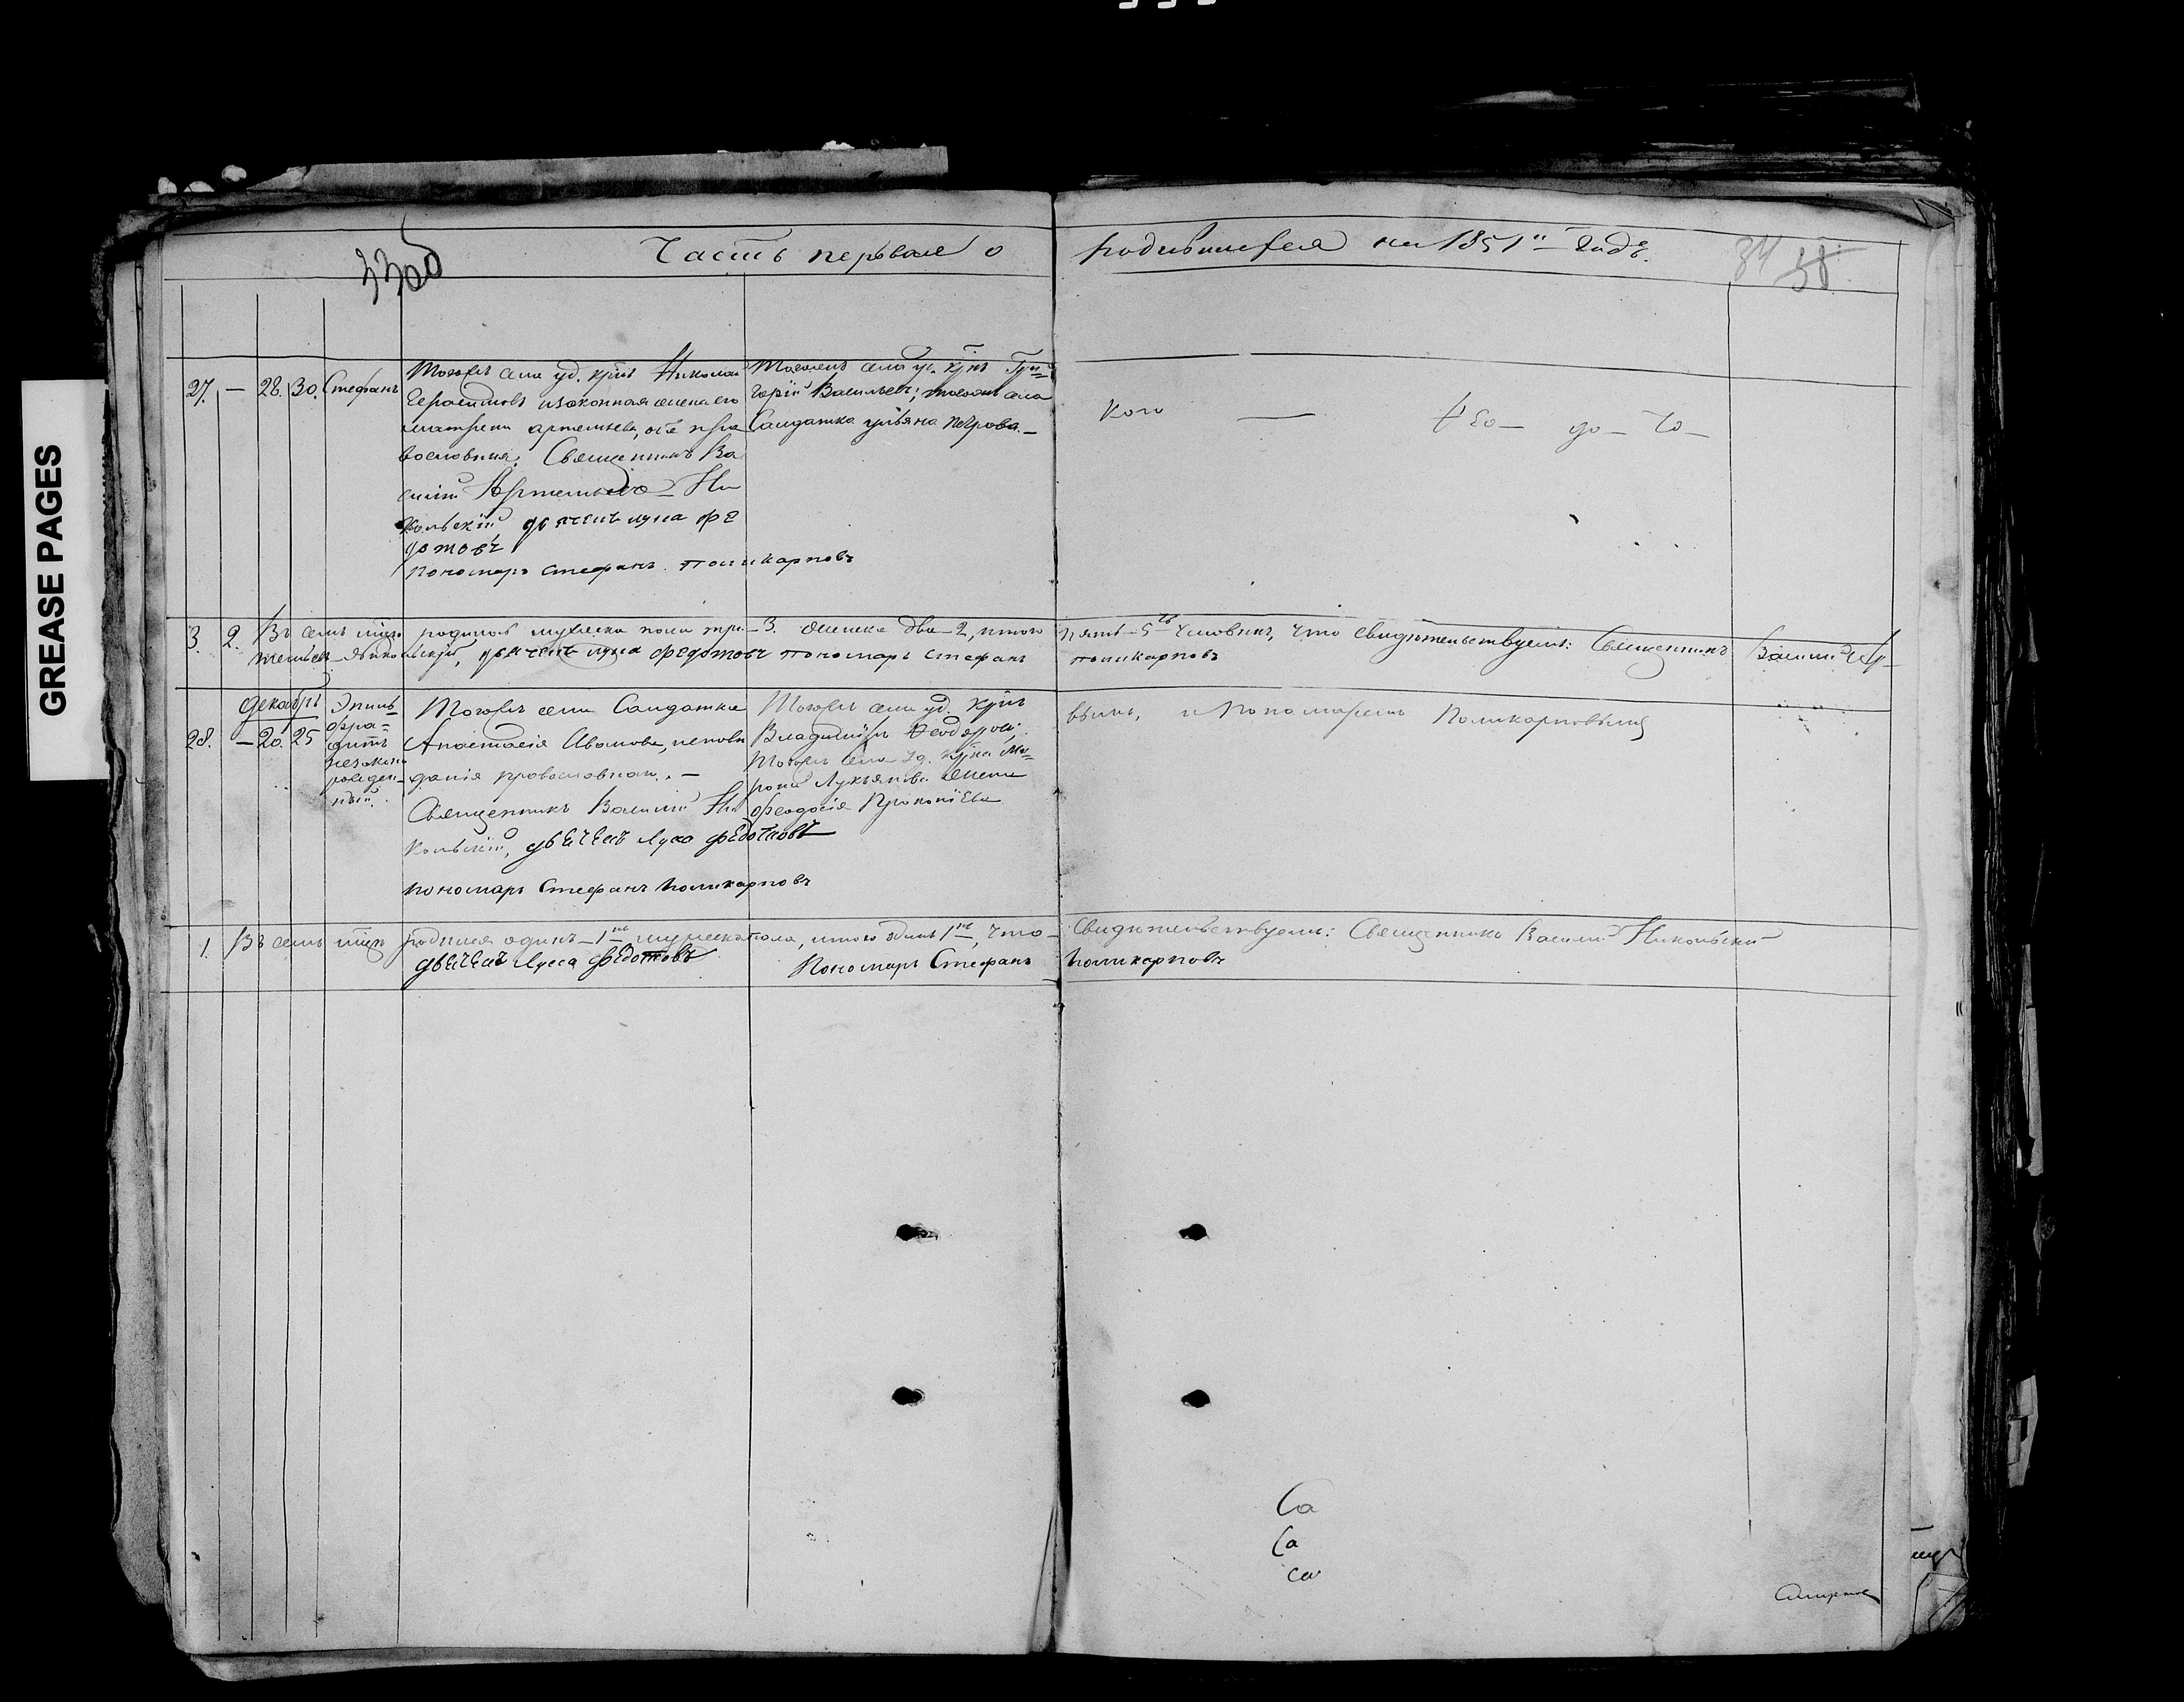 GREASE PAGES
33об
Часть первая о родившихся на 1851й годъ.
34 38
27. — 28. 30. Стефанъ
Тогожъ села уд. крнъ Николай
Герасимовъ и законная жена его
Матрена Артемьева, оба пра
вославныя. Священникъ Ва
силій Артемьевъ Ни
кольскій дьячекъ Лука Фе
дотовъ
пономарь Стефанъ Поликарповъ
Тогожъ села уд. крнъ Гри=
горій Васильевъ; тогожъ села
Солдатка Ульяна Петрова. —
Кого — не — до — го —
3. 2. Въ семъ мцѣ родилось мужеска пола три — 3. женска два — 2, итого
пять — 5ть человѣкъ, что свидѣтельствуемъ: Священникъ Василій Ар
темьевъ Никольскій, дьячекъ Лука Федотовъ пономарь Стефанъ
поликарповъ
Декабрь
28. — 20. 25
Эпаф
фра=
дитъ
незаконно
рожден=
ный.
Тогожъ села Солдатка
Анастасія Иванова, исповѣ
данія православнаго. —
Священникъ Василій Ни
кольскій, дьячекъ Лука Федотовъ
пономарь Стефанъ Поликарповъ
Тогожъ села уд. крнъ
Владиміръ Ѳеодоровъ;
Тогожъ села уд. крна Ми=
рона Лукьянова жена
Феодосія Прокопіева
вымъ, и Пономаремъ Поликарповымъ
1. Въ семъ мцѣ родился одинъ — 1нъ мужеска пола, итого одинъ 1нъ, что —
свидѣтельствуемъ: Священникъ Василій Никольскій
дьячекъ Лука Федотовъ Пономарь Стефанъ
Поликарповъ
Са
Са
са